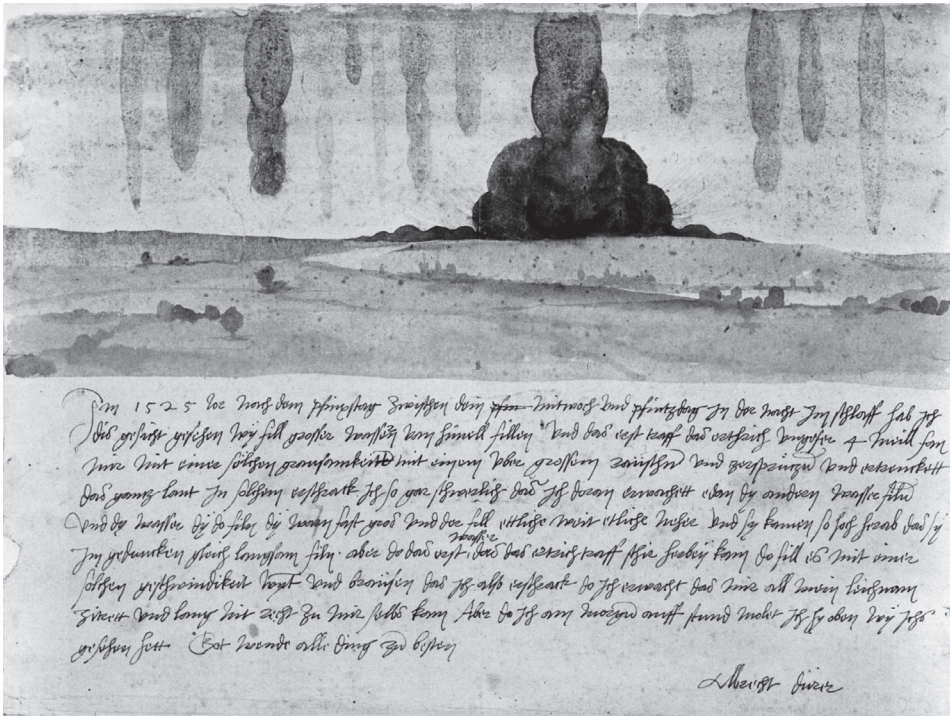 Im 1525 Jor nach dem pfinxstag zwischen dem pfin mitwoch und pfintzdag in der nacht im schlaff hab ich
dis gesicht gesehen wy fill grosser wassern vom himell fillen Und das erst traff das erthrich ungefer 4 meill fan
mir mit einer solchen grausamkeitt mit einem uber grossem raüschn und zersprützn und ertrenckett
das gantz lant In solchem erschrack ich so gar schwerlich das ich doran erwachett edan dy andern wasser filn
Und dy wasser dy do filn dy warn fast gros und der fill ettliche weit etliche neher und sy kamen so hoch herab das sy
im gedancken gleich langsam filn. aber do das erst wasser das das ertrich traff schir herbey kam do fill es mit einer
solchen geschwindikeit wynt und braüsen das ich also erschrack do ich erwacht das mir all mein leichnam
zitrett und lang nit recht zu mir selbs kam Aber do ich am morgn auff stund molet ich hy oben wy ichs
gesehen hett Got wende alle ding zu besten
Albrecht dürer